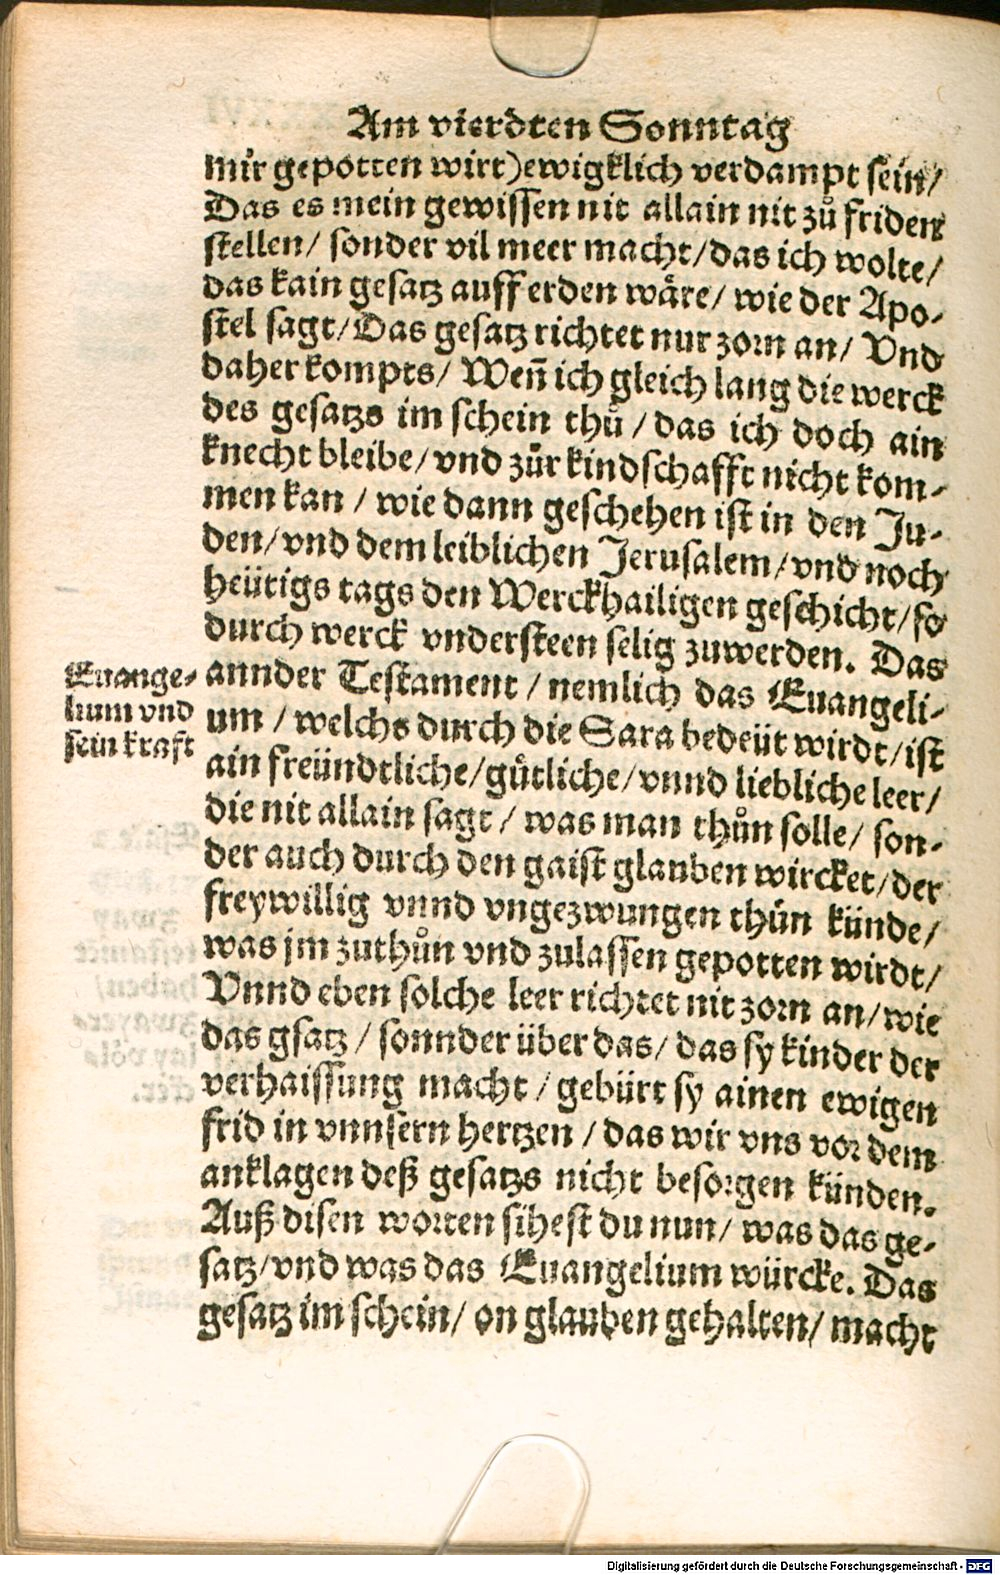 Am vierdten Sonntag
mir gepotten wirt) ewigklich verdampt sein/
Das es mein gewissen nit allain nit zů friden
stellen/ sonder vil meer macht/ das ich wolte/
das kain gesatz auff erden wäre/ wie der Apo-
stel sagt/ Das gesatz richtet nur zorn an/ Vnd
daher kompts/ Weñ ich gleich lang die werck
des gesatzs im schein thů/ das ich doch ain
knecht bleibe/ vnd zůr kindschafft nicht kom-
men kan/ wie dann geschehen ist in den Ju-
den/ vnd dem leiblichen Jerusalem/ vnd noch
heütigs tags den Werckhailigen geschicht/ so
durch werck vndersteen selig zuwerden. Das
annder Testament/ nemlich das Euangeli-
um/ welchs durch die Sara bedeüt wirdt/ ist
ain freündtliche/ gůtliche/ vnnd liebliche leer/
die nit allain sagt/ was man thůn solle/ son-
der auch durch den gaist glauben wircket/ der
freywillig vnnd vngezwungen thůn künde/
was jm zuthůn vnd zulassen gepotten wirdt/
Vnnd eben solche leer richtet nit zorn an/ wie
das gsatz/ sonnder über das/ das sy kinder der
verhaissung macht/ gebürt sy ainen ewigen
frid in vnnsern hertzen/ das wir vns vor dem
anklagen deß gesatzs nicht besorgen künden.
Auß disen worten sihest du nun/ was das ge-
satz/ vnd was das Euangelium würcke. Das
gesatz im schein/ on glauben gehalten/ macht
Euange-
lium vnd
sein kraft
Digitalisierung gefördert durch die Deutsche Forschungsgemeinschaft - DFG